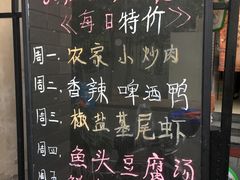 《每日特价》
周一、农家小炒肉
周二、香辣啤酒鸭
周三、椒盐基尾虾
周四、鱼头豆腐汤
周五